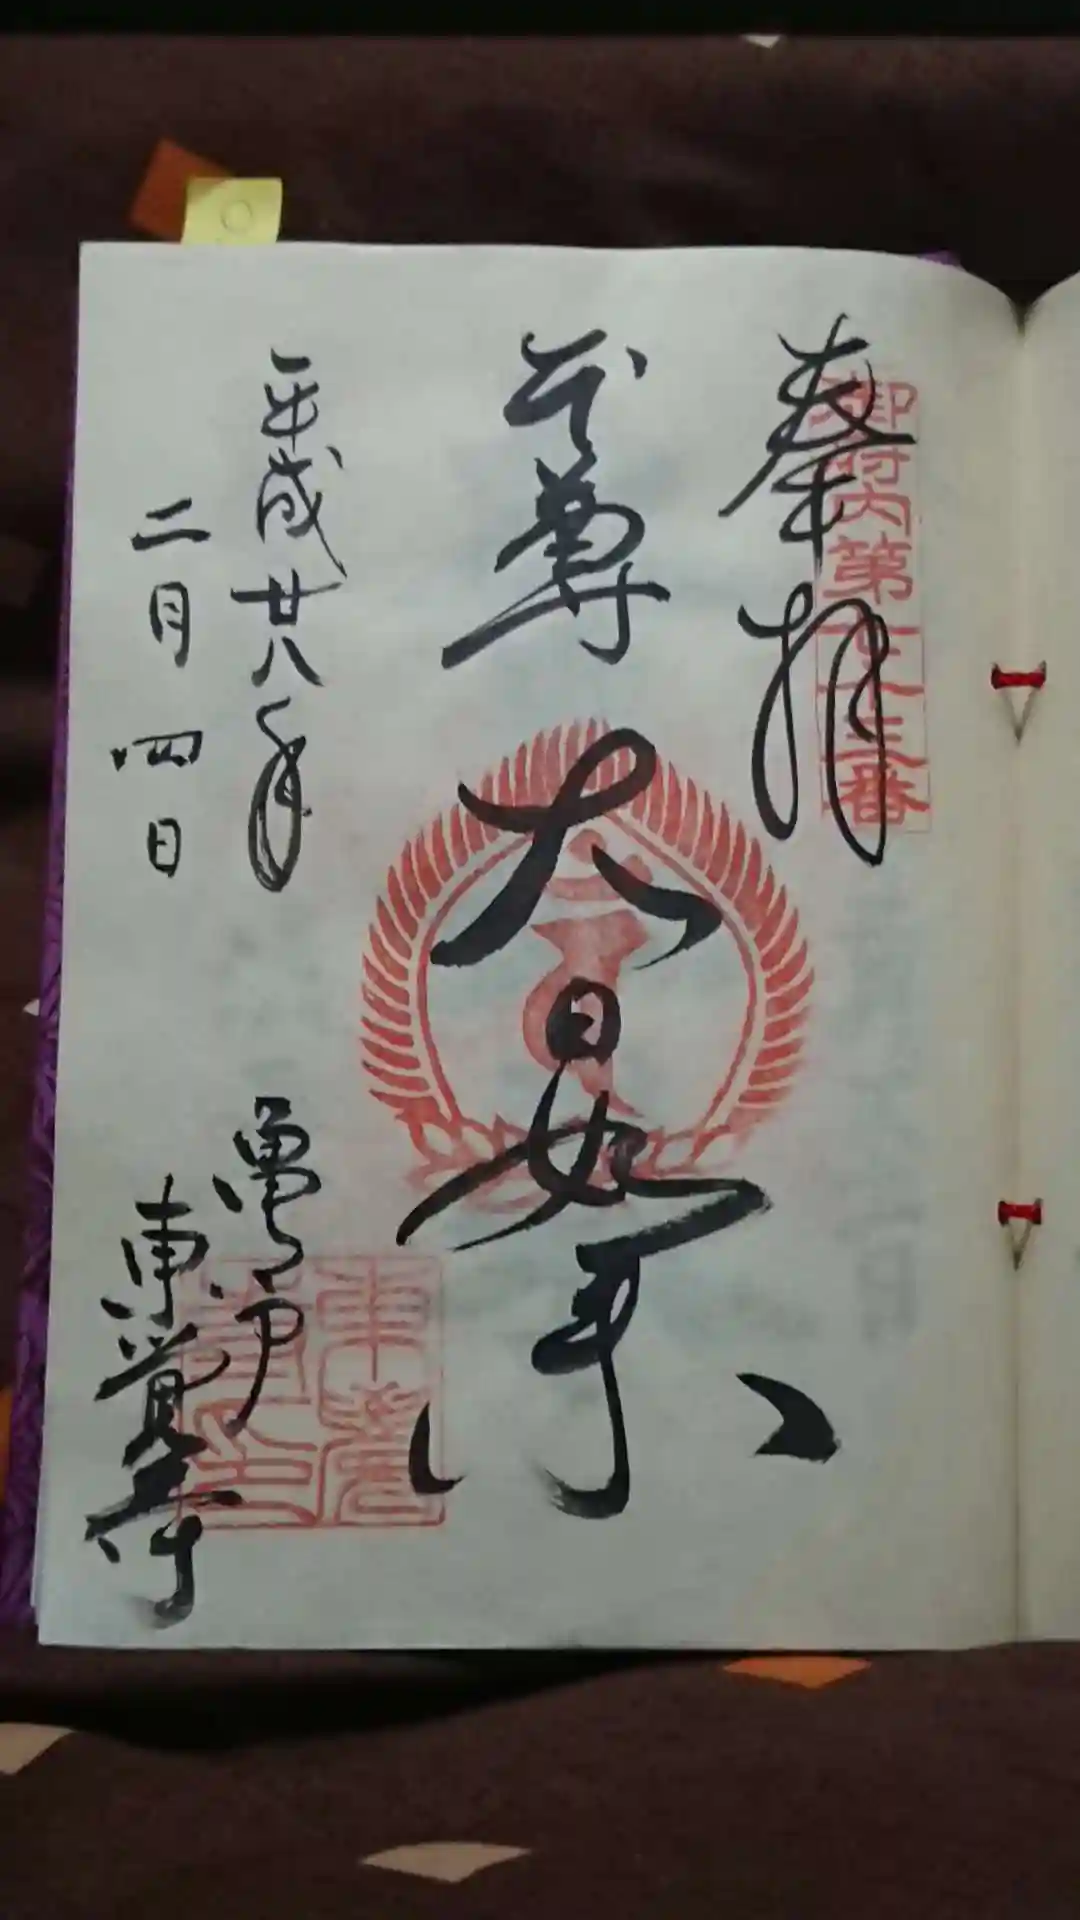 奉拝
御府内第七十三番
本尊
大日如来
平成廿八年
二月四日
亀戸
東覚寺